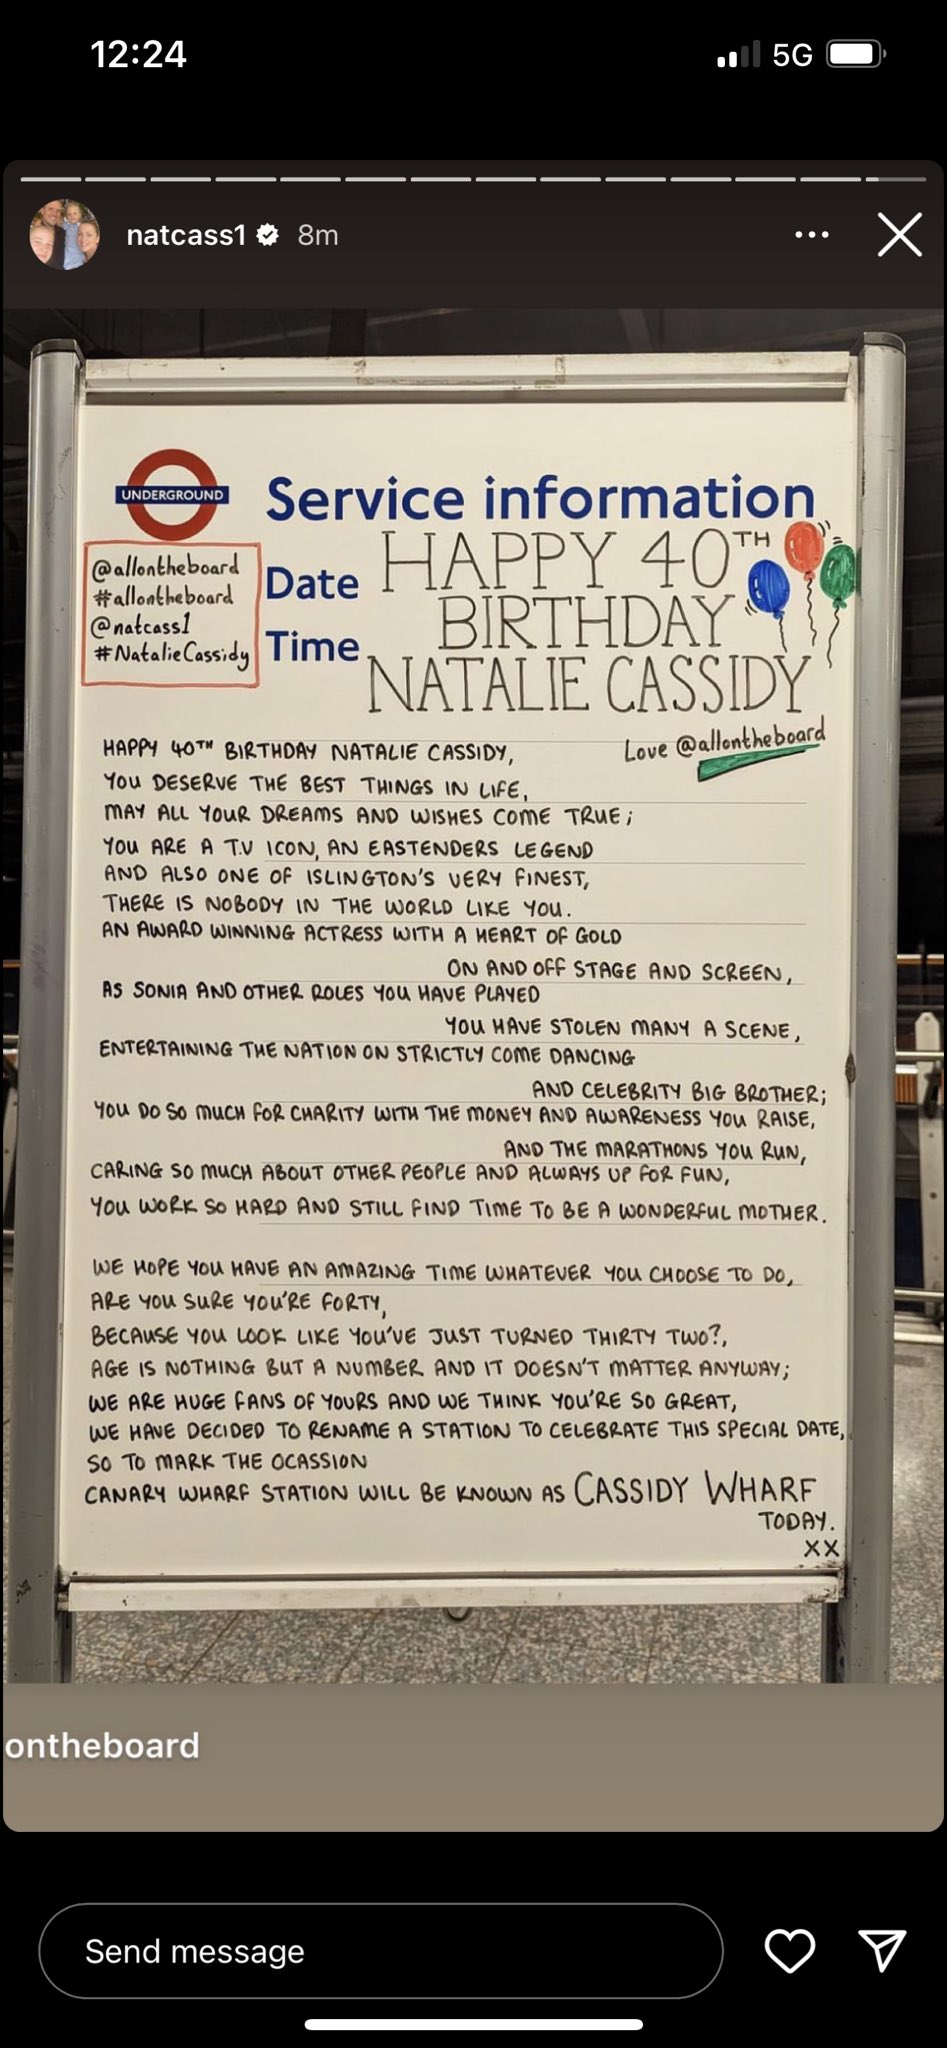 12:24
5G
natcass1 8m
UNDERGROUND
Service information
@allontheboard
#allontheboard
@natcass1
#NatalieCassidy
Date
Time
HAPPY 40TH
BIRTHDAY
NATALIE CASSIDY
Love @allontheboard
HAPPY 40TH BIRTHDAY NATALIE CASSIDY,
YOU DESERVE THE BEST THINGS IN LIFE,
MAY ALL YOUR DREAMS AND WISHES COME TRUE;
YOU ARE A T.V ICON, AN EASTENDERS LEGEND
AND ALSO ONE OF ISLINGTON'S VERY FINEST,
THERE IS NOBODY IN THE WORLD LIKE YOU.
AN AWARD WINNING ACTRESS WITH A HEART OF GOLD
ON AND OFF STAGE AND SCREEN,
AS SONIA AND OTHER ROLES YOU HAVE PLAYED
YOU HAVE STOLEN MANY A SCENE,
ENTERTAINING THE NATION ON STRICTLY COME DANCING
AND CELEBRITY BIG BROTHER;
YOU DO SO MUCH FOR CHARITY WITH THE MONEY AND AWARENESS YOU RAISE,
AND THE MARATHONS YOU RUN,
CARING SO MUCH ABOUT OTHER PEOPLE AND ALWAYS UP FOR FUN,
YOU WORK SO HARD AND STILL FIND TIME TO BE A WONDERFUL MOTHER.
WE HOPE YOU HAVE AN AMAZING TIME WHATEVER YOU CHOOSE TO DO,
ARE YOU SURE YOU'RE FORTY,
BECAUSE YOU LOOK LIKE YOU'VE JUST TURNED THIRTY TWO?,
AGE IS NOTHING BUT A NUMBER AND IT DOESN'T MATTER ANYWAY;
WE ARE HUGE FANS OF YOURS AND WE THINK YOU'RE SO GREAT,
WE HAVE DECIDED TO RENAME A STATION TO CELEBRATE THIS SPECIAL DATE,
SO TO MARK THE OCASSION
CANARY WHARF STATION WILL BE KNOWN AS CASSIDY WHARF
TODAY.
XX
ontheboard
Send message